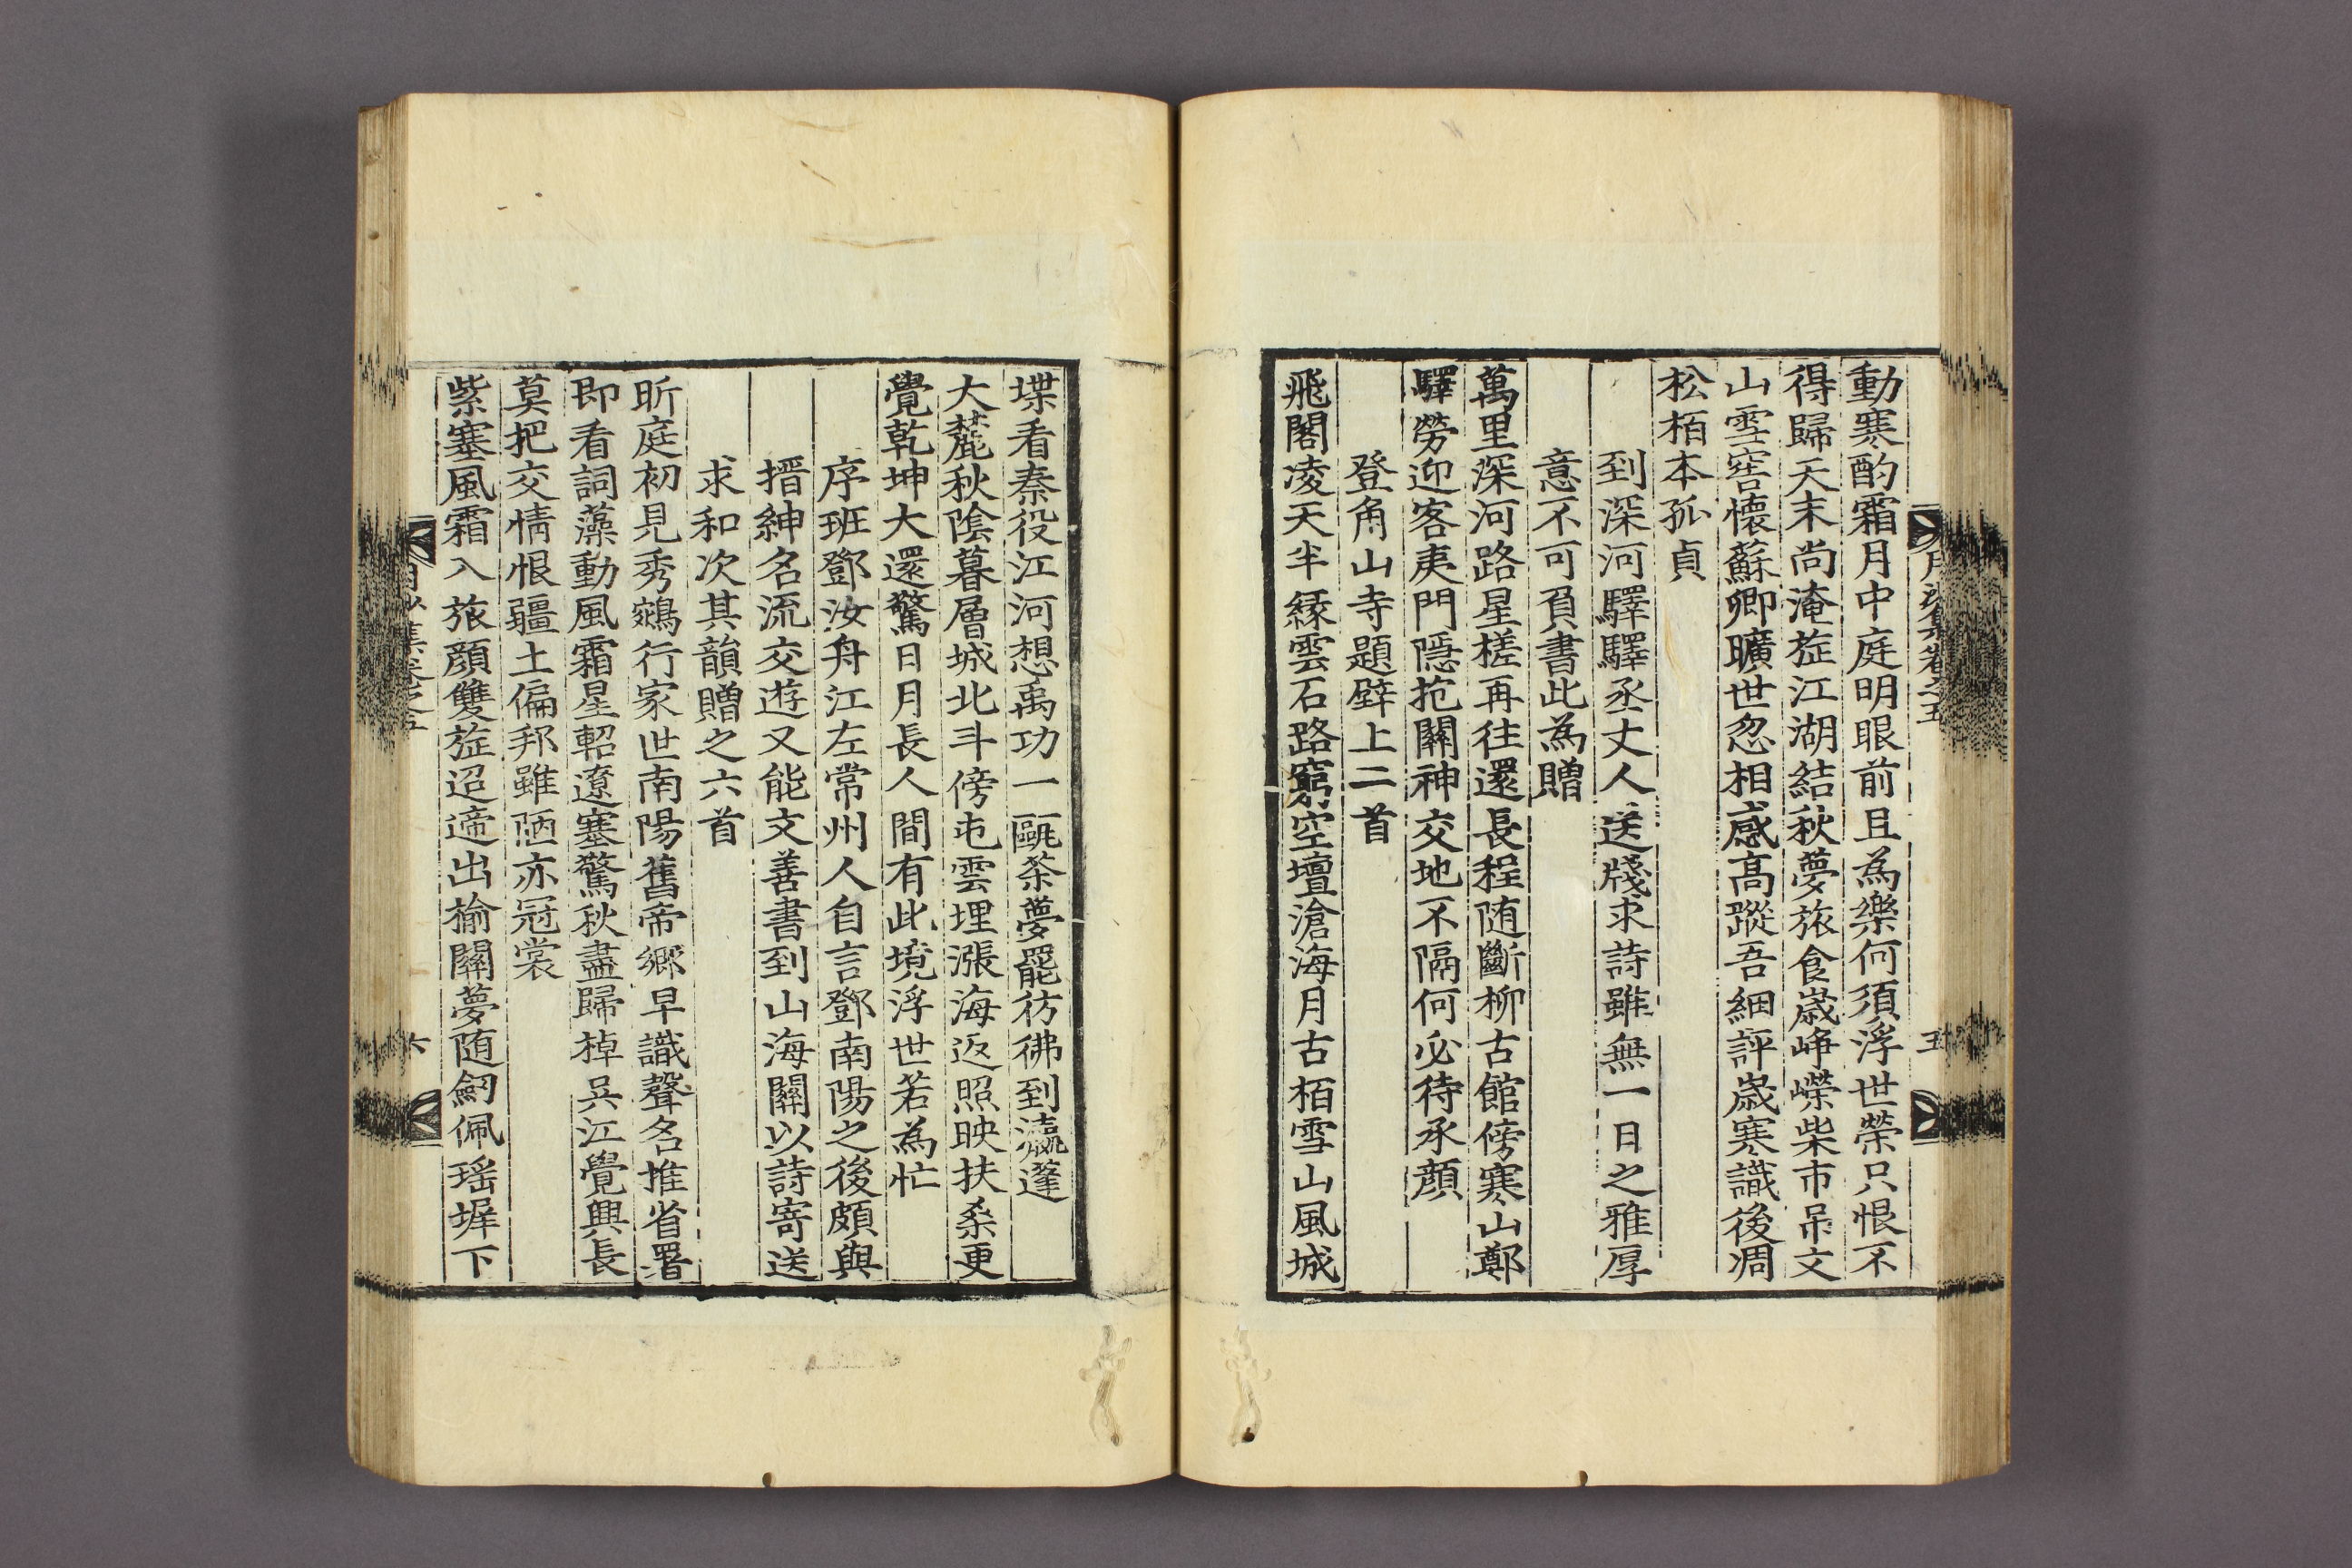 動寒酌霜月中庭明眼前且為樂何須浮世榮只恨不
得歸天末尚淹旌江湖結秋夢旅食歲崢嶸柴市吊文
山雪窖懷蘇卿曠世忽相感高蹤吾細評歲寒識後凋
松栢本孤貞
到深河驛驛丞丈人送牋求詩雖無一日之雅厚
意不可負書此為贈
萬里深河路星槎再往還長程随斷柳古館傍寒山鄭
驛勞迎客夷門隱抱關神交地不隔何必待承顔
登角山寺題壁上二首
飛閣凌天半緣雲石路窮空壇滄海月古栢雪山風城
堞看秦役江河想禹功一甌茶夢罷彷彿到瀛蓬
大麓秋陰暮層城北斗傍屯雲埋漲海返照映扶桑更
覺乾坤大還驚日月長人間有此境浮世若為忙
序班鄧汝舟江左常州人自言鄧南陽之後頗與
搢紳名流交遊又能文善書到山海關以詩寄送
求和次其韻贈之六首
昕庭初見秀鵷行家世南陽舊帝鄉早識聲名推省署
即看詞藻動風霜星軺遼塞驚秋盡歸棹吳江覺興長
莫把交情恨疆土偏邦雖陋亦冠裳
紫塞風霜入旅顔雙旌迢遞出榆關夢随劒佩瑶墀下
月沙集卷之五
五
六